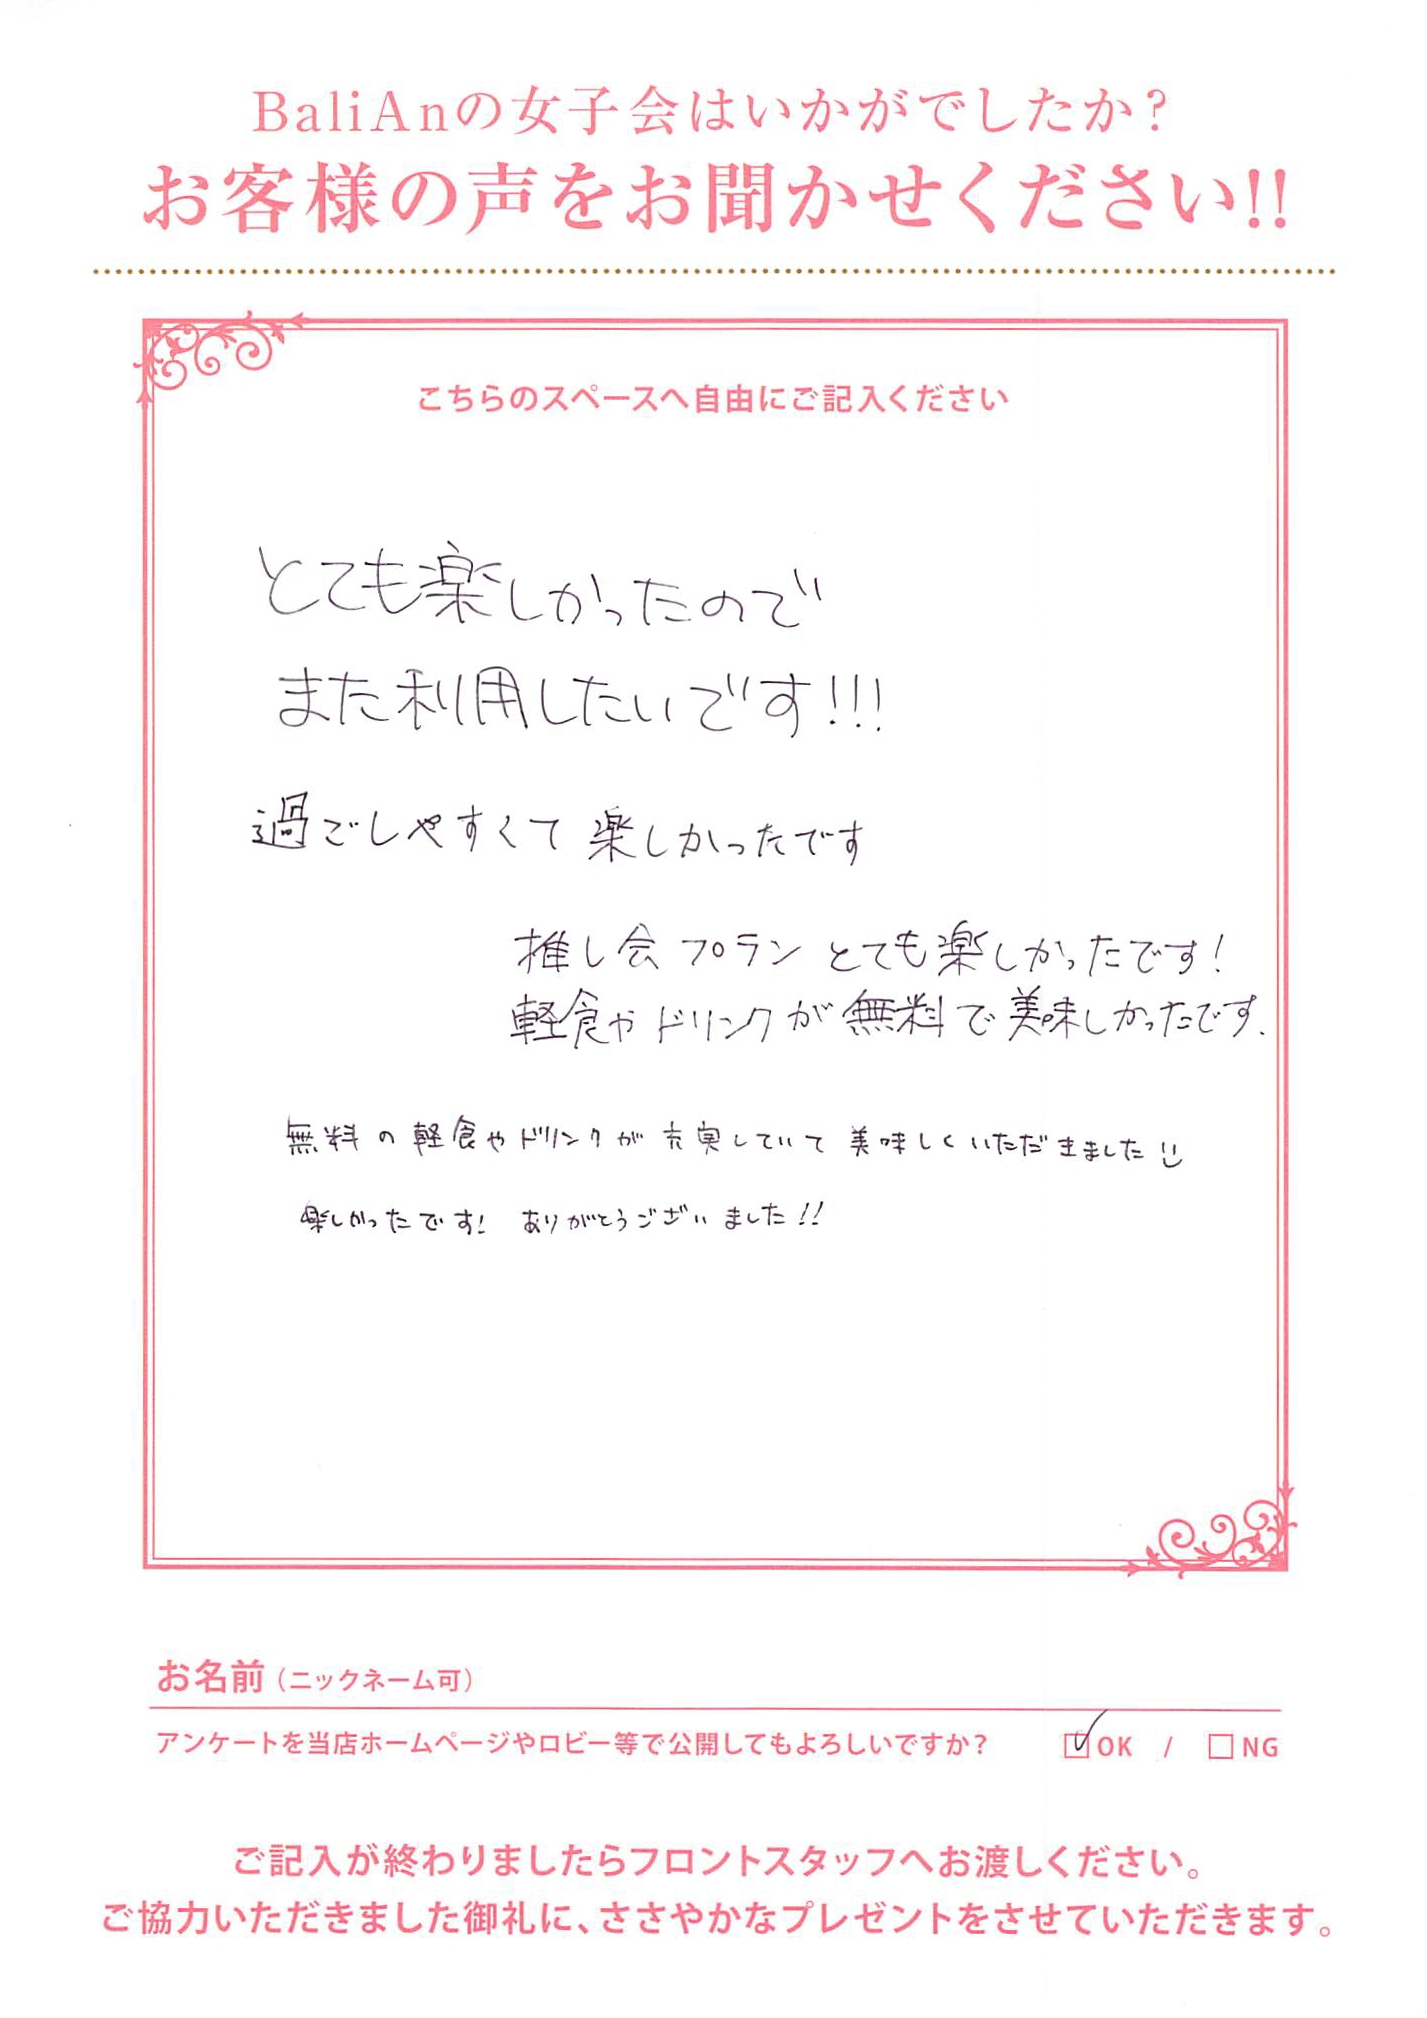 BaliAnの女子会はいかがでしたか？
お客様の声をお聞かせください!!
こちらのスペースへ自由にご記入ください
とても楽しかったので
また利用したいです!!!
過ごしやすくて 楽しかったです
推し会 プラン とても楽しかったです!
軽食や ドリンクが 無料で 美味しかったです.
無料の 軽食や ドリンクが 充実していて 美味しくいただきました
楽しかったです! ありがとうございました!!
お名前（ニックネーム可）
アンケートを当店ホームページやロビー等で公開してもよろしいですか？ ☑OK / □NG
ご記入が終わりましたらフロントスタッフへお渡しください。
ご協力いただきました御礼に、ささやかなプレゼントをさせていただきます。